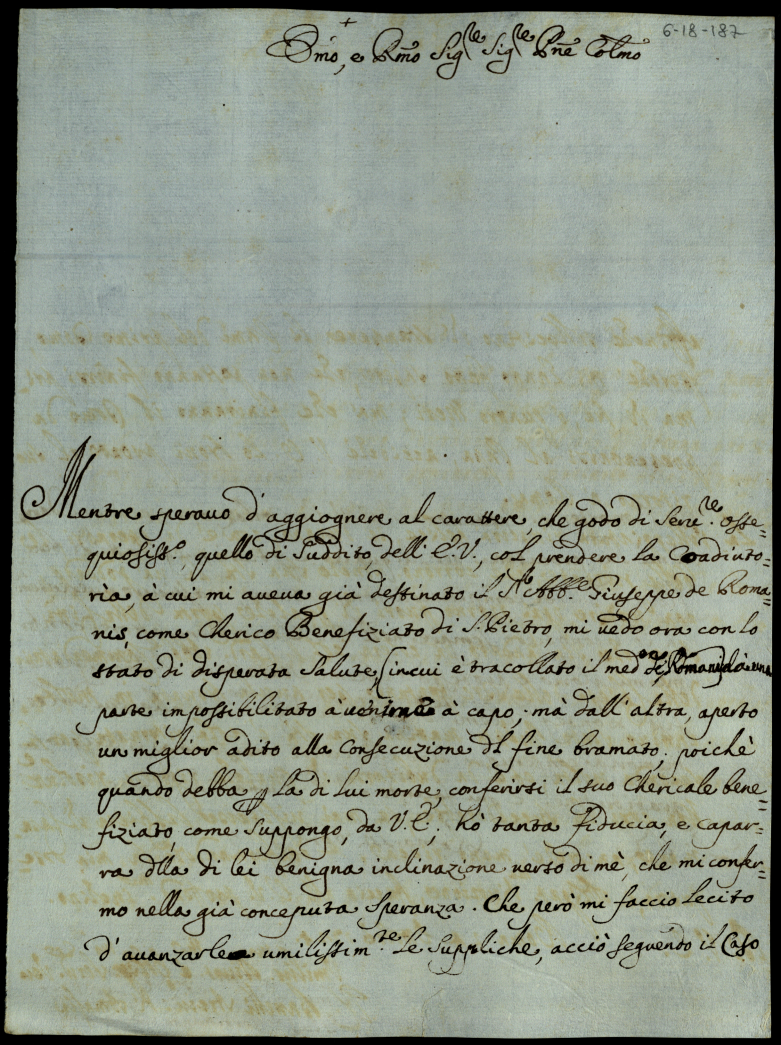 6-18-187
+
Em̃o, e Rm̃o Sig.re Sig.re Pñe Colm̃o
Mentre speravo d'aggiognere al carattere, che godo di Serv.re osse=
quiosiss.o quello di Suddito dell'E.V., col prendere la Coadiuto=
rìa, à cui mi aveva già destinato il S.r Abb.e Giuseppe de Roma=
nis, come Cherico Benefiziato di S. Pietro, mi vedo ora con lo
stato di disperata Salute, (in cui è tracollato il med.o de Romanis) da una
parte impossibilitato à venirne à capo; mà dall'altra, aperto
un miglior adito alla Consecuzione dl fine bramato; poichè
quando debba p la di lui morte, conferirsi il suo Chericale bene=
fiziato, come suppongo, da V.E., hò tanta fiducia, e capar=
ra dlla di lei benigna inclinazione verso di mè, che mi confer=
mo nella già conceputa speranza. Che però mi faccio lecito
d'avanzarle umilissim.te le suppliche, acciò seguendo il Caso